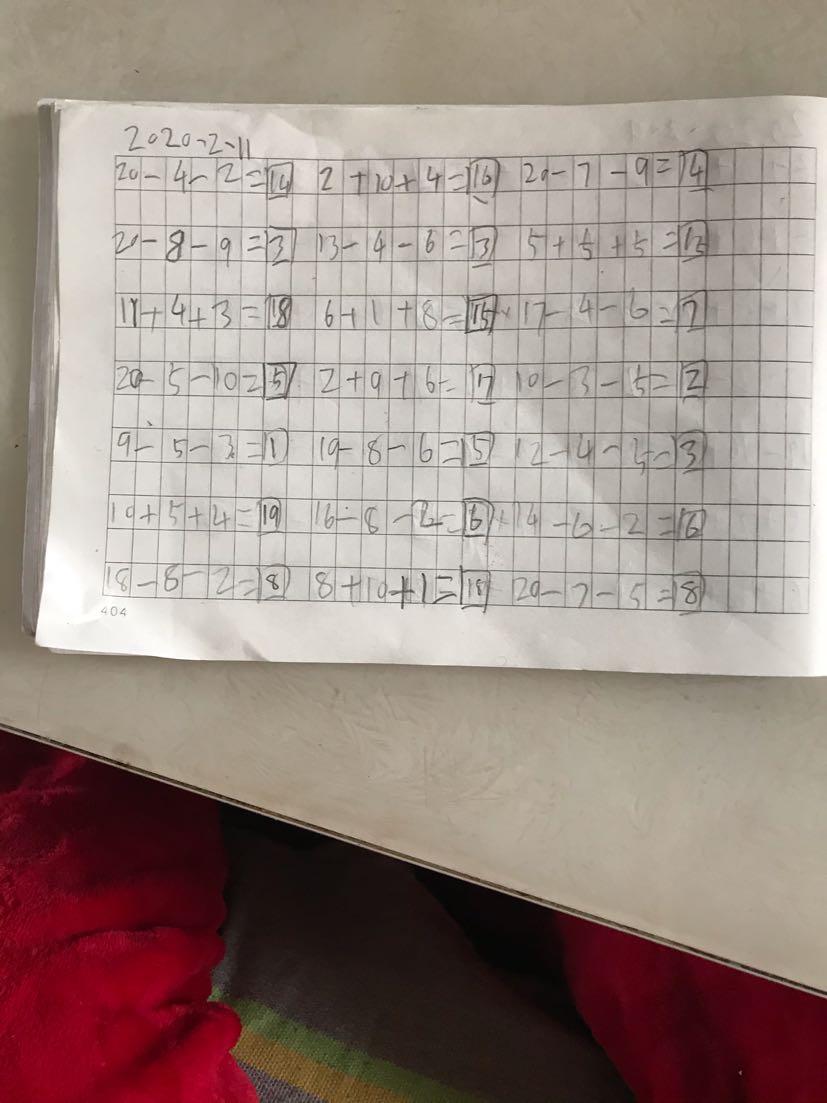 2020-2-11
20-4-2=14 2+10+4=16 20-7-9=4
20-8-9=3 13-4-6=3 5+5+5=15
11+4+3=18 6+1+8=15 17-4-6=7
20-5-10=5 2+9+6=17 10-3-5=2
9-5-3=1 19-8-6=5 12-4-5=3
10+5+4=19 16-8-2=6 14-6-2=6
18-8-2=8 8+10+1=19 20-7-5=8
404